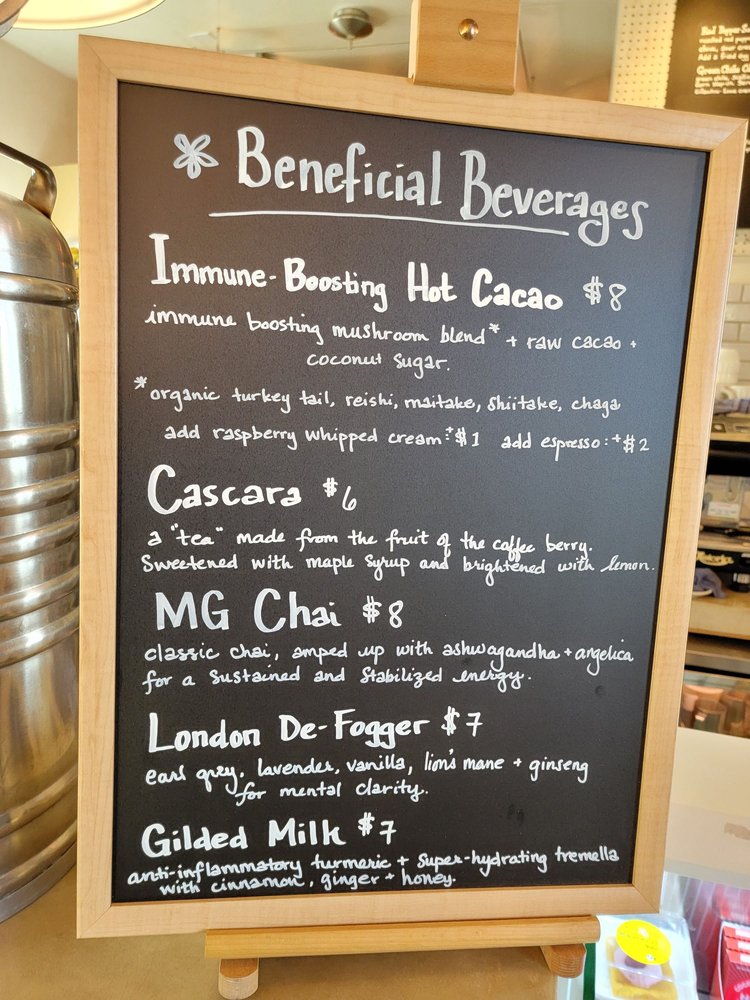 * Beneficial Beverages
Immune-Boosting Hot Cacao $8
immune boosting mushroom blend* + raw cacao +
coconut sugar.
*organic turkey tail, reishi, maitake, shiitake, chaga
add raspberry whipped cream:+$1 add espresso:+$2
Cascara $6
a "tea" made from the fruit of the coffee berry.
Sweetened with maple syrup and brightened with lemon.
MG Chai $8
classic chai, amped up with ashwagandha + angelica
for a sustained and stabilized energy.
London De-Fogger $7
earl grey, lavender, vanilla, lion's mane + ginseng
for mental clarity.
Gilded Milk $7
anti-inflammatory turmeric + super-hydrating tremella
with cinnamon, ginger + honey.
Red Pepper
Green Chile